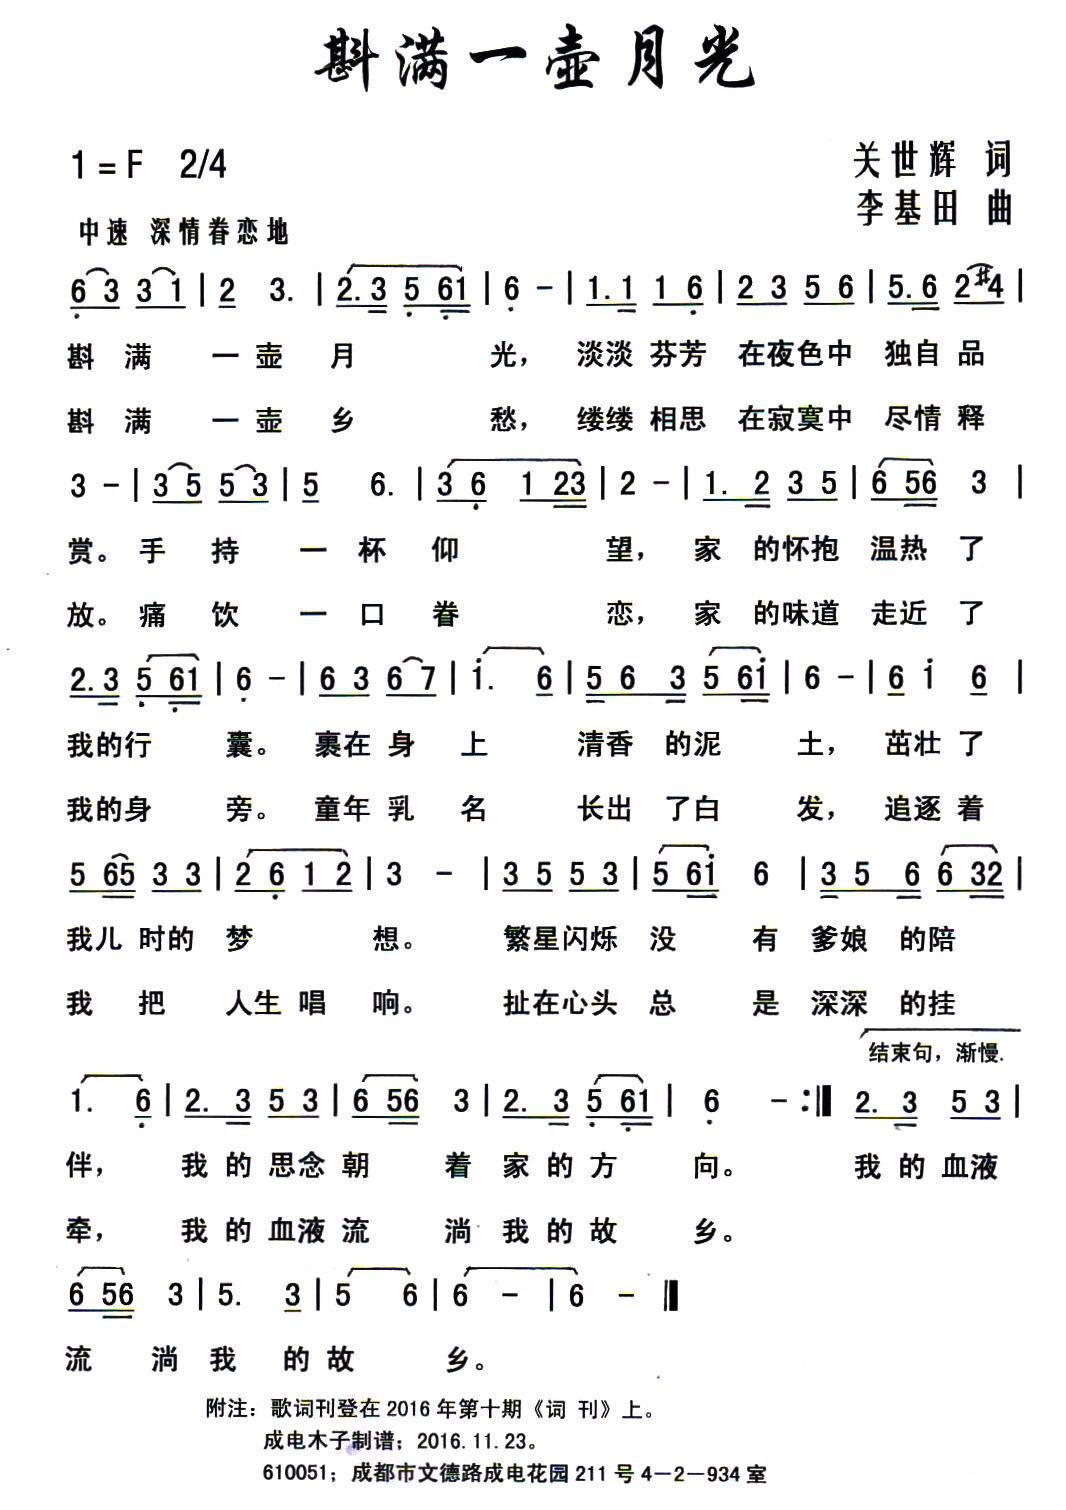 斟满一壶月光
1=F 2/4
关世辉 词
李基田 曲
中速 深情眷恋地
6 3 3 1 | 2 3. | 2.3 5 61 | 6 - | 1.1 1 6 | 2 3 5 6 | 5.6 2 #4 |
斟 满 一 壶 月 光， 淡淡 芬芳 在夜色中 独自 品
斟 满 一 壶 乡 愁， 缕缕 相思 在寂寞中 尽情 释
3 - | 3 5 5 3 | 5 6. | 3 6 1 23 | 2 - | 1. 2 3 5 | 6 56 3 |
赏。 手 持 一 杯 仰 望， 家 的怀抱 温热 了
放。 痛 饮 一 口 眷 恋， 家 的味道 走近 了
2.3 5 61 | 6 - | 6 3 6 7 | 1. 6 | 5 6 3 5 61 | 6 - | 6 1 6 |
我的行 囊。 裹在 身 上 清香 的泥 土， 茁壮 了
我的身 旁。 童年 乳 名 长出 了白 发， 追逐 着
5 65 3 3 | 2 6 1 2 | 3 - | 3 5 5 3 | 5 61 6 | 3 5 6 6 32 |
我儿 时的 梦 想。 繁星闪烁 没 有 爹娘 的陪
我 把 人生 唱 响。 扯在心头 总 是 深深 的挂
结束句，渐慢.
1. 6 | 2. 3 5 3 | 6 56 3 | 2. 3 5 61 | 6 - :‖ 2. 3 5 3 |
伴， 我 的 思念 朝 着 家 的 方 向。 我 的 血液
牵， 我 的 血液 流 淌 我 的 故 乡。
6 56 3 | 5. 3 | 5 6 | 6 - | 6 - ‖
流 淌 我 的 故 乡。
附注：歌词刊登在2016年第十期《词 刊》上。
成电木子制谱；2016.11.23。
610051；成都市文德路成电花园211号4-2-934室